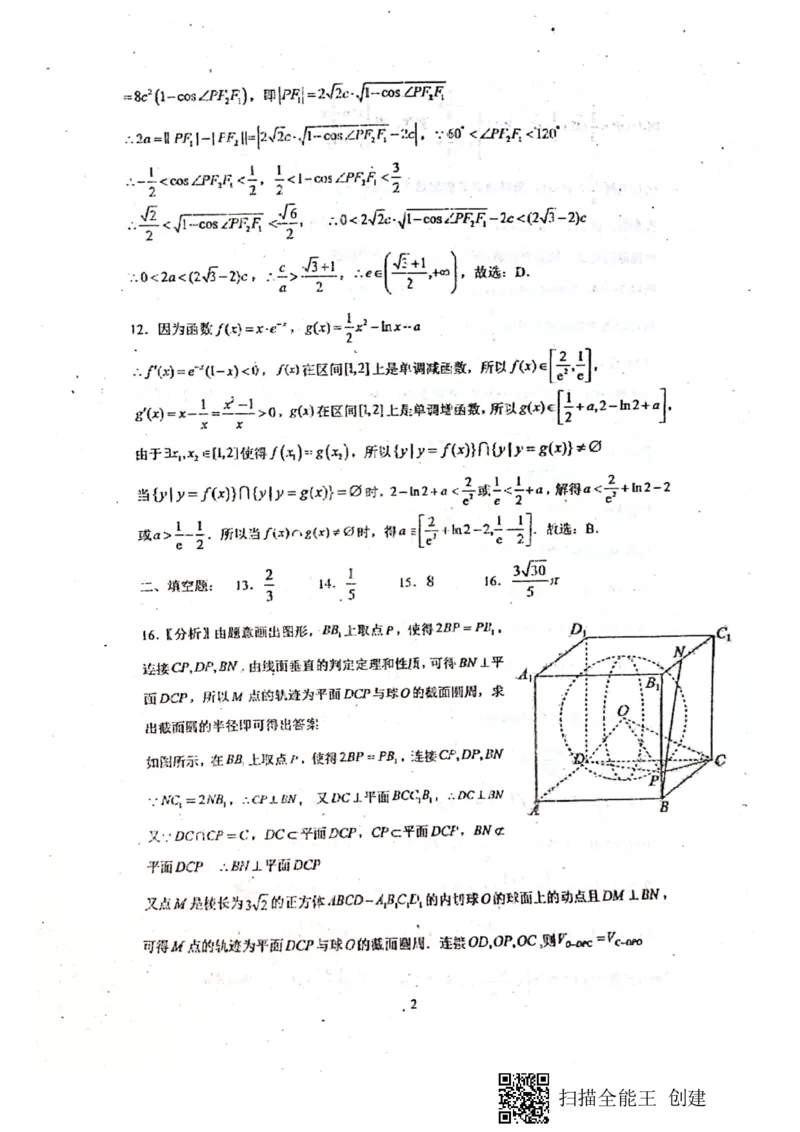 =8c²(1−cos∠PF₂F₁)，即|PF₁|=2√2c·√(1−cos∠PF₂F₁)
∴2a=||PF₁|−|PF₂||=|2√2c·√(1−cos∠PF₂F₁)−2c|，∵60°<∠PF₂F₁<120°
∴−1/2<cos∠PF₂F₁<1/2，1/2<1−cos∠PF₂F₁<3/2
∴√2/2<√(1−cos∠PF₂F₁)<√6/2，∴0<2√2c·√(1−cos∠PF₂F₁)−2c<(2√3−2)c
∴0<2a<(2√3−2)c，∴c/a>(√3+1)/2，∴e∈((√3+1)/2,+∞)，故选：D.
12．因为函数f(x)=x·e⁻ˣ，g(x)=1/2x²−lnx−a
∴f′(x)=e⁻ˣ(1−x)<0，f(x)在区间[1,2]上是单调减函数，所以f(x)∈[2/e²,1/e]，
g′(x)=x−1/x=(x²−1)/x>0，g(x)在区间[1,2]上是单调增函数，所以g(x)∈[1/2+a,2−ln2+a]，
由于∃x₁,x₂∈[1,2]使得f(x₁)=g(x₂)，所以{y|y=f(x)}∩{y|y=g(x)}≠∅
当{y|y=f(x)}∩{y|y=g(x)}=∅时，2−ln2+a<2/e²或1/e<1/2+a，解得a<2/e²+ln2−2
或a>1/e−1/2．所以当f(x)∩g(x)≠∅时，得a∈[2/e²+ln2−2,1/e−1/2]．故选：B.
二、填空题： 13．2/3 14．1/5 15．8 16．3√30/5π
16．【分析】由题意画出图形，BB₁上取点P，使得2BP=PB₁，
连接CP,DP,BN，由线面垂直的判定定理和性质，可得BN⊥平
面DCP，所以M点的轨迹为平面DCP与球O的截面圆周，求
出截面圆的半径即可得出答案
如图所示，在BB₁上取点P，使得2BP=PB₁，连接CP,DP,BN
∵NC₁=2NB₁，∴CP⊥BN，又DC⊥平面BCC₁B₁，∴DC⊥BN
又∵DC∩CP=C，DC⊂平面DCP，CP⊂平面DCP，BN⊄
平面DCP ∴BN⊥平面DCP
又点M是棱长为3√2的正方体ABCD−A₁B₁C₁D₁的内切球O的球面上的动点且DM⊥BN，
可得M点的轨迹为平面DCP与球O的截面圆周．连接OD,OP,OC,则V_{O−DPC}=V_{C−OPD}
D₁
C₁
N
A₁
B₁
O
D
C
P
A
B
2
扫描全能王 创建